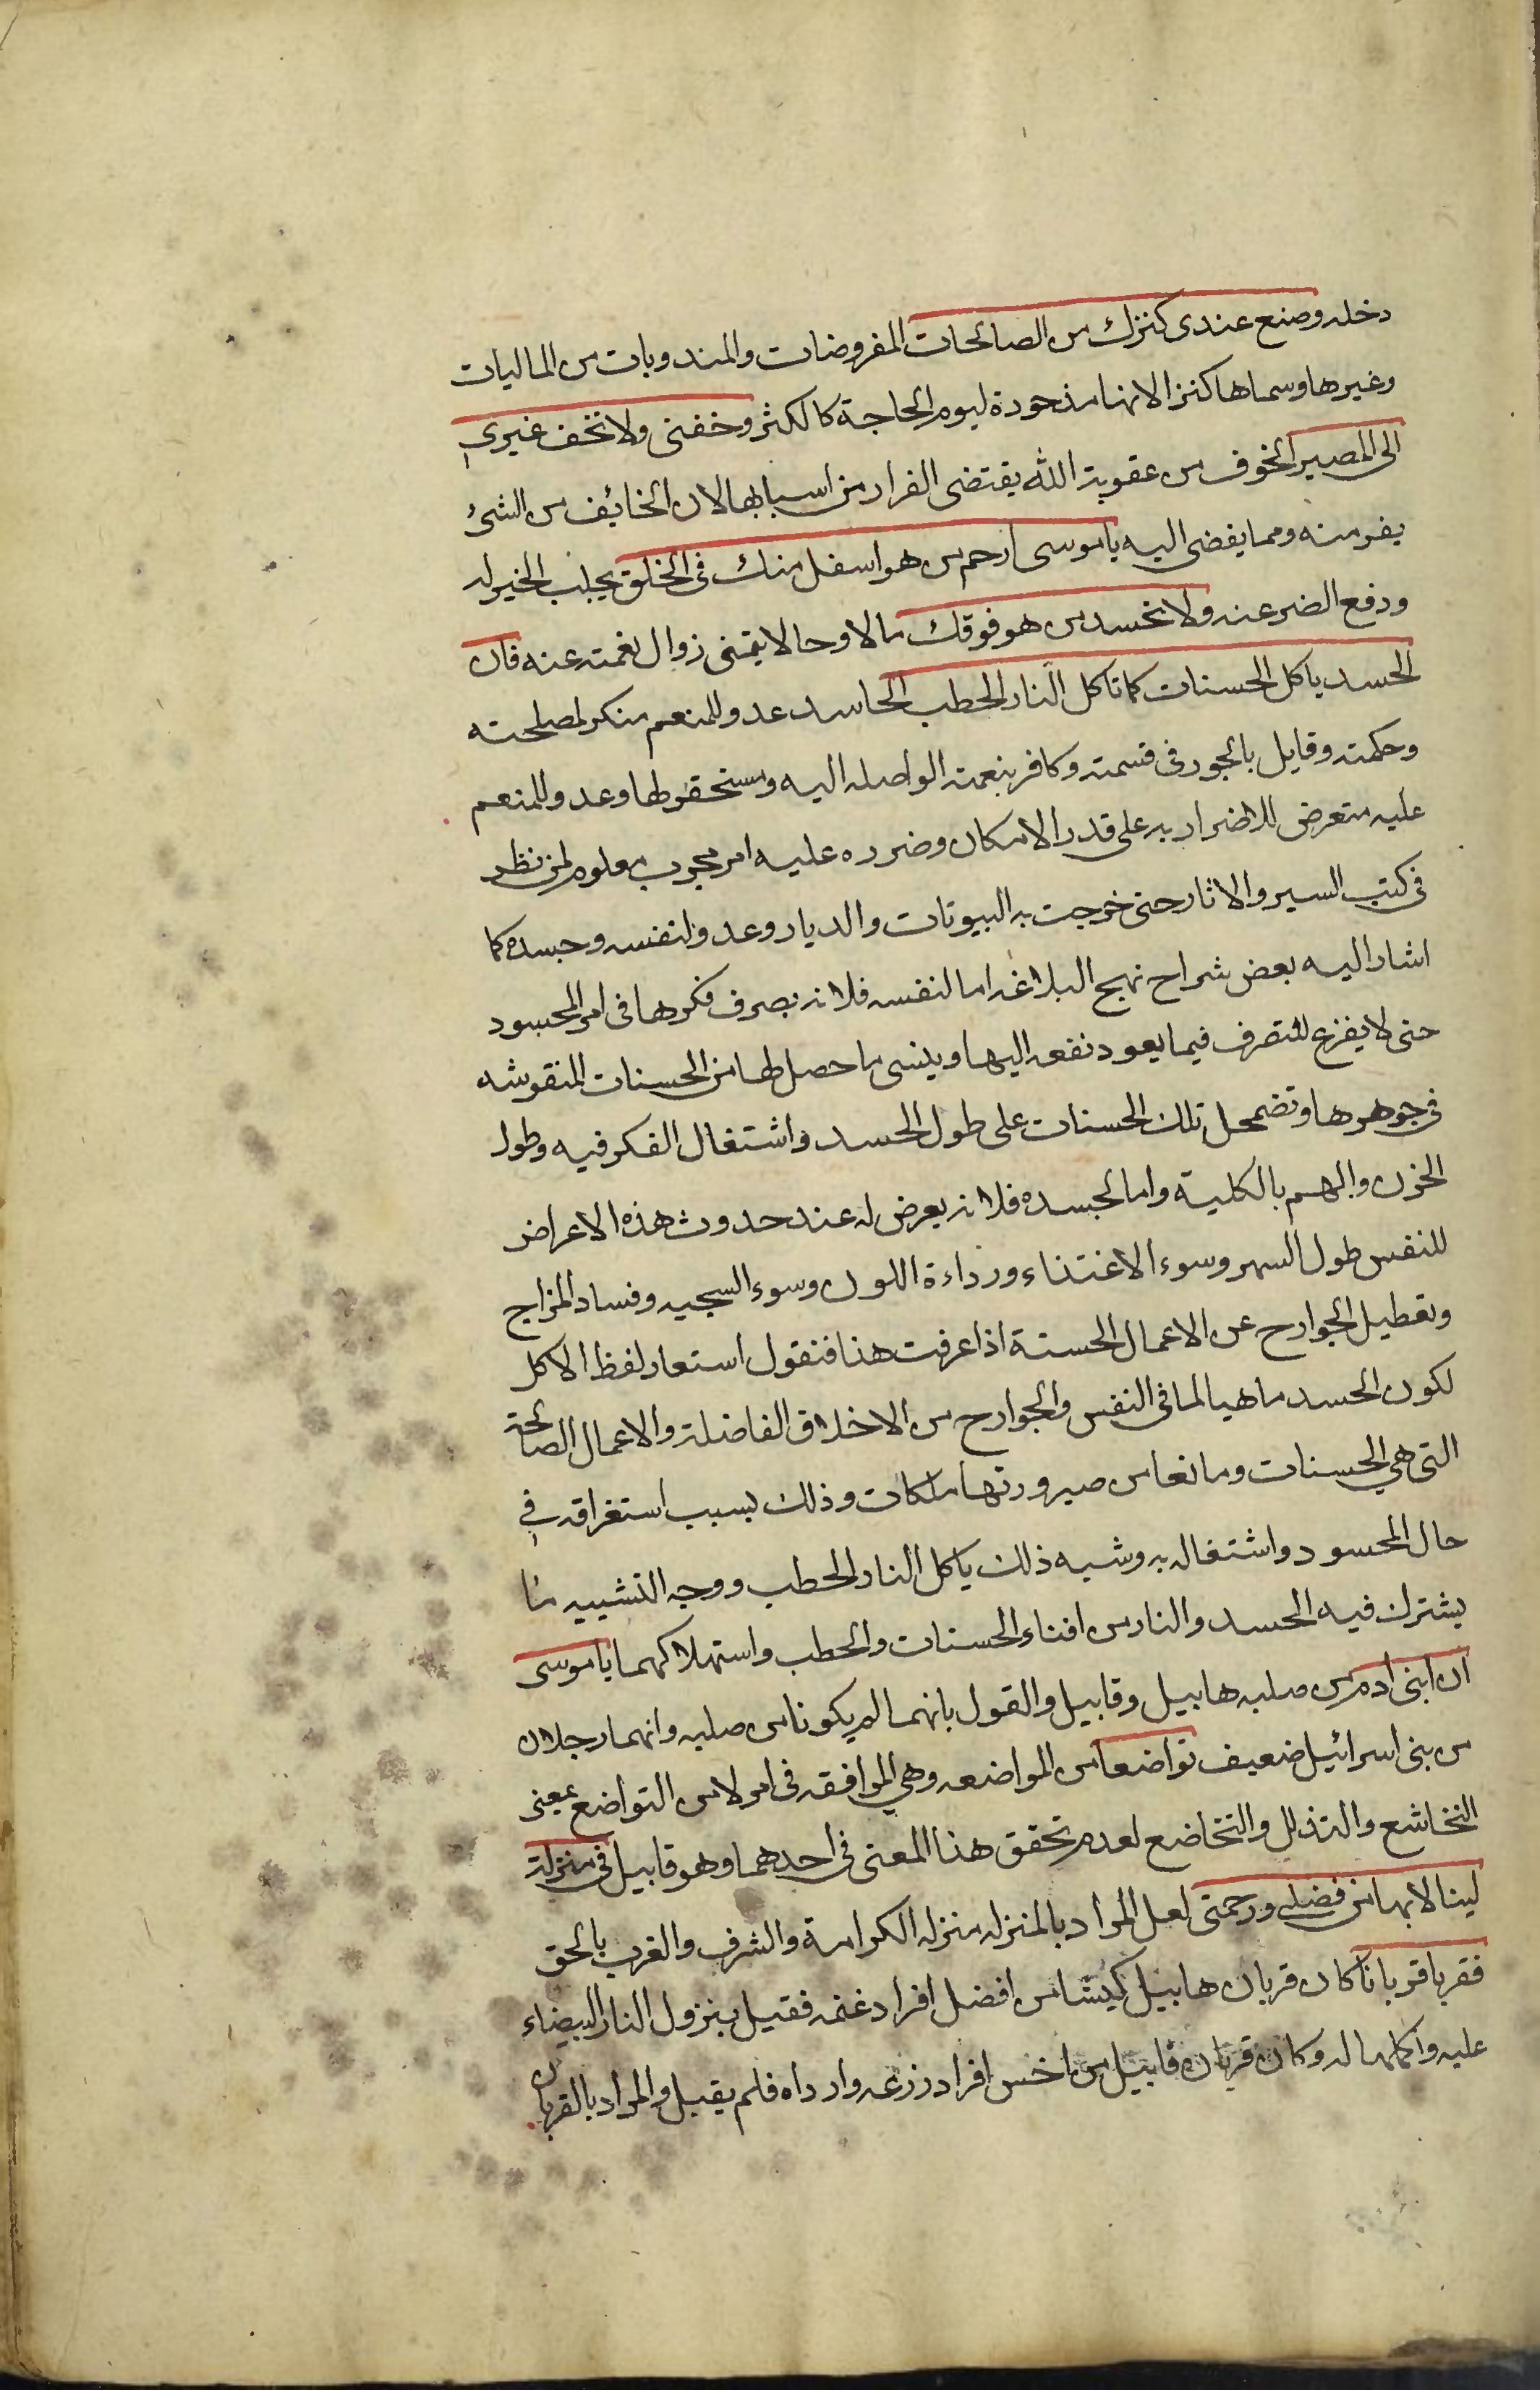 دخله وصنع عندى كنزك من الصالحات المفروضات والمندوبات من الماليات
وغيرها وسماها كنزا لانها مذخورة ليوم الحاجة كالكنز وخفنى ولا تخف غيرى
الى المصير الخوف من عقوبة الله يقتضى الفرار من اسبابها لان الخائف من الشئ
يفر منه ومما يفضى اليه يا موسى ارحم من هو اسفل منك فى الخلق بجلب الخير له
ودفع الضر عنه ولا تحسد من هو فوقك مالا وحالا يتمنى زوال نعمته عنه فان
الحسد ياكل الحسنات كما تاكل النار الحطب الحاسد عدو للمنعم منكر لمصلحته
وحكمته وقايل بالجور فى قسمته وكافر بنعمته الواصله اليه ومستحقر لها وعدو للمنعم
عليه متعرض للاضرار به على قدر الامكان وضرره عليه امر مجرب معلوم لمن نظر
فى كتب السير والاثار حتى خرجت به البيوتات والديار وعدو لنفسه وجسده كما
اشار اليه بعض شراح نهج البلاغه اما لنفسه فلانه يصرف فكرها فى امر المحسود
حتى لا يفزع للتصرف فيما يعود نفعه اليها وينسى ما حصل لها من الحسنات المنقوشه
فى جوهرها وتضمحل تلك الحسنات على طول الحسد واشتغال الفكر فيه وطول
الحزن والهم بالكلية واما لجسده فلانه يعرض له عند حدوث هذه الاعراض
للنفس طول السهر وسوء الاغتذاء ورداءة اللون وسوء السجيه وفساد المزاج
وتعطيل الجوارح عن الاعمال الحسنة اذا عرفت هذا فنقول استعار لفظ الاكل
لكون الحسد ماهيا لما فى النفس والجوارح من الاخلاق الفاضلة والاعمال الصالحة
التى هي الحسنات ومانعا من صيرورتها ملكات وذلك بسبب استغراقه فى
حال المحسود واشتغاله به وشبه ذلك ياكل النار الحطب ووجه التشبيه ما
يشترك فيه الحسد والنار من افناء الحسنات والحطب واستهلاكهما يا موسى
ان ابنى ادم من صلبه هابيل وقابيل والقول بانهما لم يكونا من صلبه وانهما رجلان
من بنى اسرائيل ضعيف تواضعا من المواضعه وهي الموافقه فى امر لا من التواضع بمعنى
التخاشع والتذلل والتخاضع لعدم تحقق هذا المعنى فى احدهما وهو قابيل فى منزلة
لينالا بها من فضلى ورحمتى لعل المراد بالمنزله منزله الكرامة والشرف والقرب بالحق
فقربا قربانا كان قربان هابيل كبشا من افضل افراد غنمه فقبل بنزول النار البيضاء
عليه واكلها له وكان قربان قابيل من اخس افراد زرعه وارداه فلم يقبل والمراد بالقربان